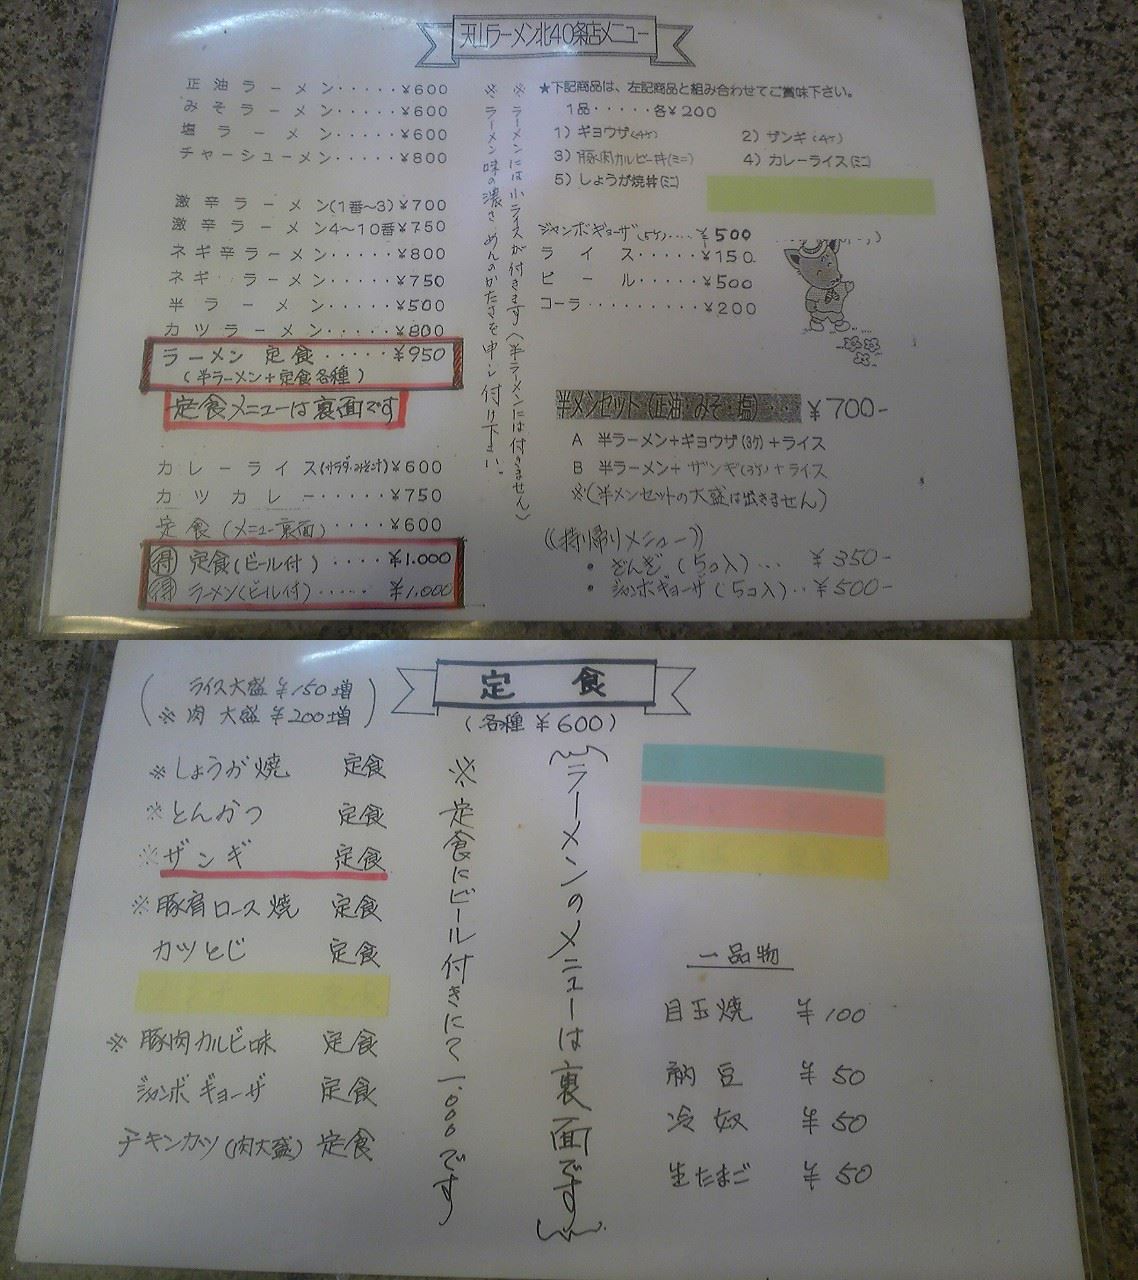 天山ラーメン北40条店メニュー
正油ラーメン・・・・・¥600
みそラーメン・・・・・¥600
塩ラーメン・・・・・¥600
チャーシューメン・・・・・¥800
激辛ラーメン(1番~3)¥700
激辛ラーメン4~10番¥750
ネギ辛ラーメン・・・・・¥800
ネギラーメン・・・・・¥750
半ラーメン・・・・・¥500
カツラーメン・・・・・¥800
ラーメン定食・・・・・¥950
(半ラーメン+定食各種)
定食メニューは裏面です
カレーライス(サラダ・みそ汁)¥600
カツカレー・・・・・¥750
定食(メニュー裏面)・・・・¥600
得 定食(ビール付)・・・・¥1.000
得 ラーメン(ビール付)・・・・・¥1,000
※ラーメンには小ライスが付きます(半ラーメンには付きません)
※ラーメン味の濃さ、めんのかたさを申し付け下さい。
★下記商品は、左記商品と組み合わせてご賞味下さい。
1品・・・・・各¥200
1)ギョウザ(4ケ) 2)ザンギ(4ケ)
3)豚肉カルビー丼(ミニ) 4)カレーライス(ミニ)
5)しょうが焼丼(ミニ)
ジャンボギョーザ(5ケ)・・・・¥500
ライス・・・・・¥150
ビール・・・・・¥500
コーラ・・・・・・・・・¥200
半メンセット(正油・みそ・塩)・・・¥700-
A 半ラーメン+ギョウザ(3ケ)+ライス
B 半ラーメン+ザンギ(3ケ)+ライス
※(半メンセットの大盛は出きません)
((持り帰りメニュー))
・ざんぎ(5コ入)...¥350-
・ジャンボギョーザ(5コ入)..¥500-
定食
(各種¥600)
ライス大盛¥150増
※肉大盛¥200増
※しょうが焼 定食
※とんかつ 定食
※ザンギ 定食
※豚肩ロース焼 定食
カツとじ 定食
※豚肉カルビ味 定食
ジャンボギョーザ 定食
チキンカツ(肉大盛)定食
※定食にビール付きにて一、〇〇〇です
ラーメンのメニューは裏面です
一品物
目玉焼 ¥100
納豆 ¥50
冷奴 ¥50
生たまご ¥50